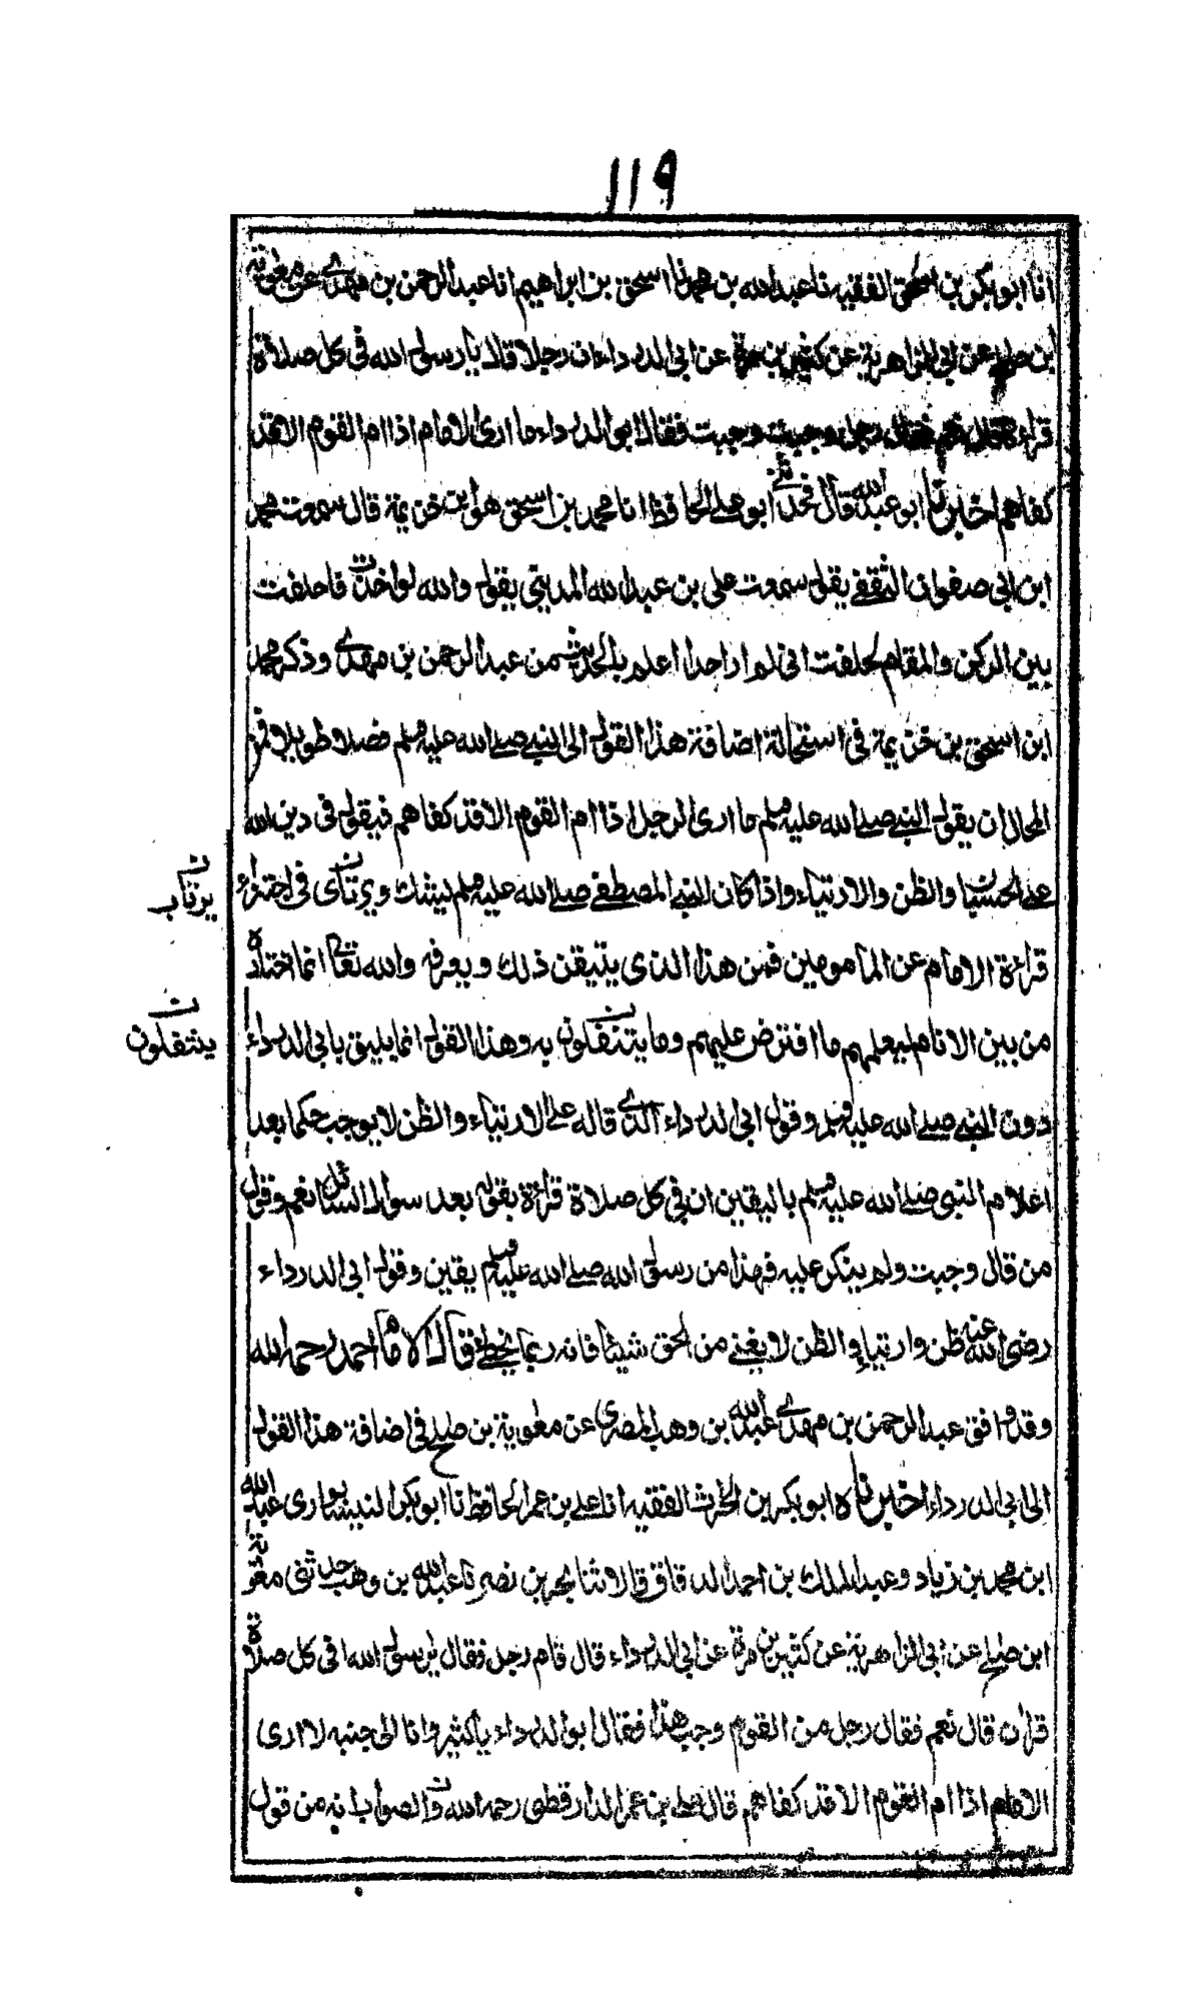 ١١٩
انا ابو بكر بن اسحق الفقيه نا عبد الله بن محمد نا اسحق بن ابراهيم انا عبد الرحمن بن مهدي عن معوية
بن صلح عن ابى الزاهرية عن كثير بن مرة عن ابى الدرداء ان رجلا قال يا رسول الله فى كل صلاة
قراءة قال نعم فقال رجل وجبت وجبت فقال ابو الدرداء ما ارى الامام اذا ام القوم الا قد
كفاهم اخبرنا ابو عبد الله قال فحدثنى ابو على الحافظ انا محمد بن اسحق هو ابن خزيمة قال سمعت محمد
ابن ابى صفوان الثقفي يقول سمعت على بن عبد الله المدينى يقول والله لو اخذت فاحلفت
بين الركن والمقام لحلفت انى لم ار احدا اعلم بالحديث من عبد الرحمن بن مهدي وذكر محمد
ابن اسحق بن خزيمة فى استحالة اضافة هذا القول الى النبي صلى الله عليه وسلم فصلا طويلا وقرء
المحال ان يقول النبي صلى الله عليه وسلم ما ارى الرجل اذا ام القوم الا قد كفاهم فيقول فى دين الله
على الحسبان والظن والارتياء واذا كان النبي المصطفى صلى الله عليه وسلم يشك ويرتأى فى اجتزاء
يرتاب
قراءة الامام عن المامومين فمن هذا الذى يتيقن ذلك ويعرفه والله تعالى انما اختاره
من بين الانام ليعلمهم ما افترض عليهم وما يتنفلون به وهذا القول انما يليق بابى الدرداء
ينتفلون
دون النبي صلى الله عليه وسلم وقول ابى الدرداء الذي قاله على الارتياء والظن لا يوجب حكما بعد
اعلام النبى صلى الله عليه وسلم باليقين ان فى كل صلاة قراءة بقوله بعد سوال السائل نعم وقول
من قال وجبت ولم ينكر عليه فهذا من رسول الله صلى الله عليه وسلم يقين وقول ابى الدرداء
رضى الله عنه ظن وارتياء والظن لا يغني من الحق شيئا فانه ربما يخطئ قال الامام احمد رحمه الله
وقد وافق عبد الرحمن بن مهدي عبد الله بن وهب المصري عن معوية بن صلح فى اضافة هذا القول
الى ابى الدرداء اخبرناه ابو بكر بن الحرث الفقيه انا على بن عمر الحافظ نا ابو بكر النيسابورى عبد الله
ابن محمد بن زياد وعبد الملك بن احمد الدقاق قالا ثنا بحر بن نصر نا عبد الله بن وهب حدثنى معوية
ابن صلح عن ابى الزاهرية عن كثير بن مرة عن ابى الدرداء قال قام رجل فقال يرسول الله افى كل صلاة
قران قال نعم فقال رجل من القوم وجب هذا فقال ابو الدرداء يا كثير وانا الى جنبه لا ارى
الامام اذا ام القوم الا قد كفاهم قال على بن عمر الدارقطنى رحمه الله والصواب انه من قول